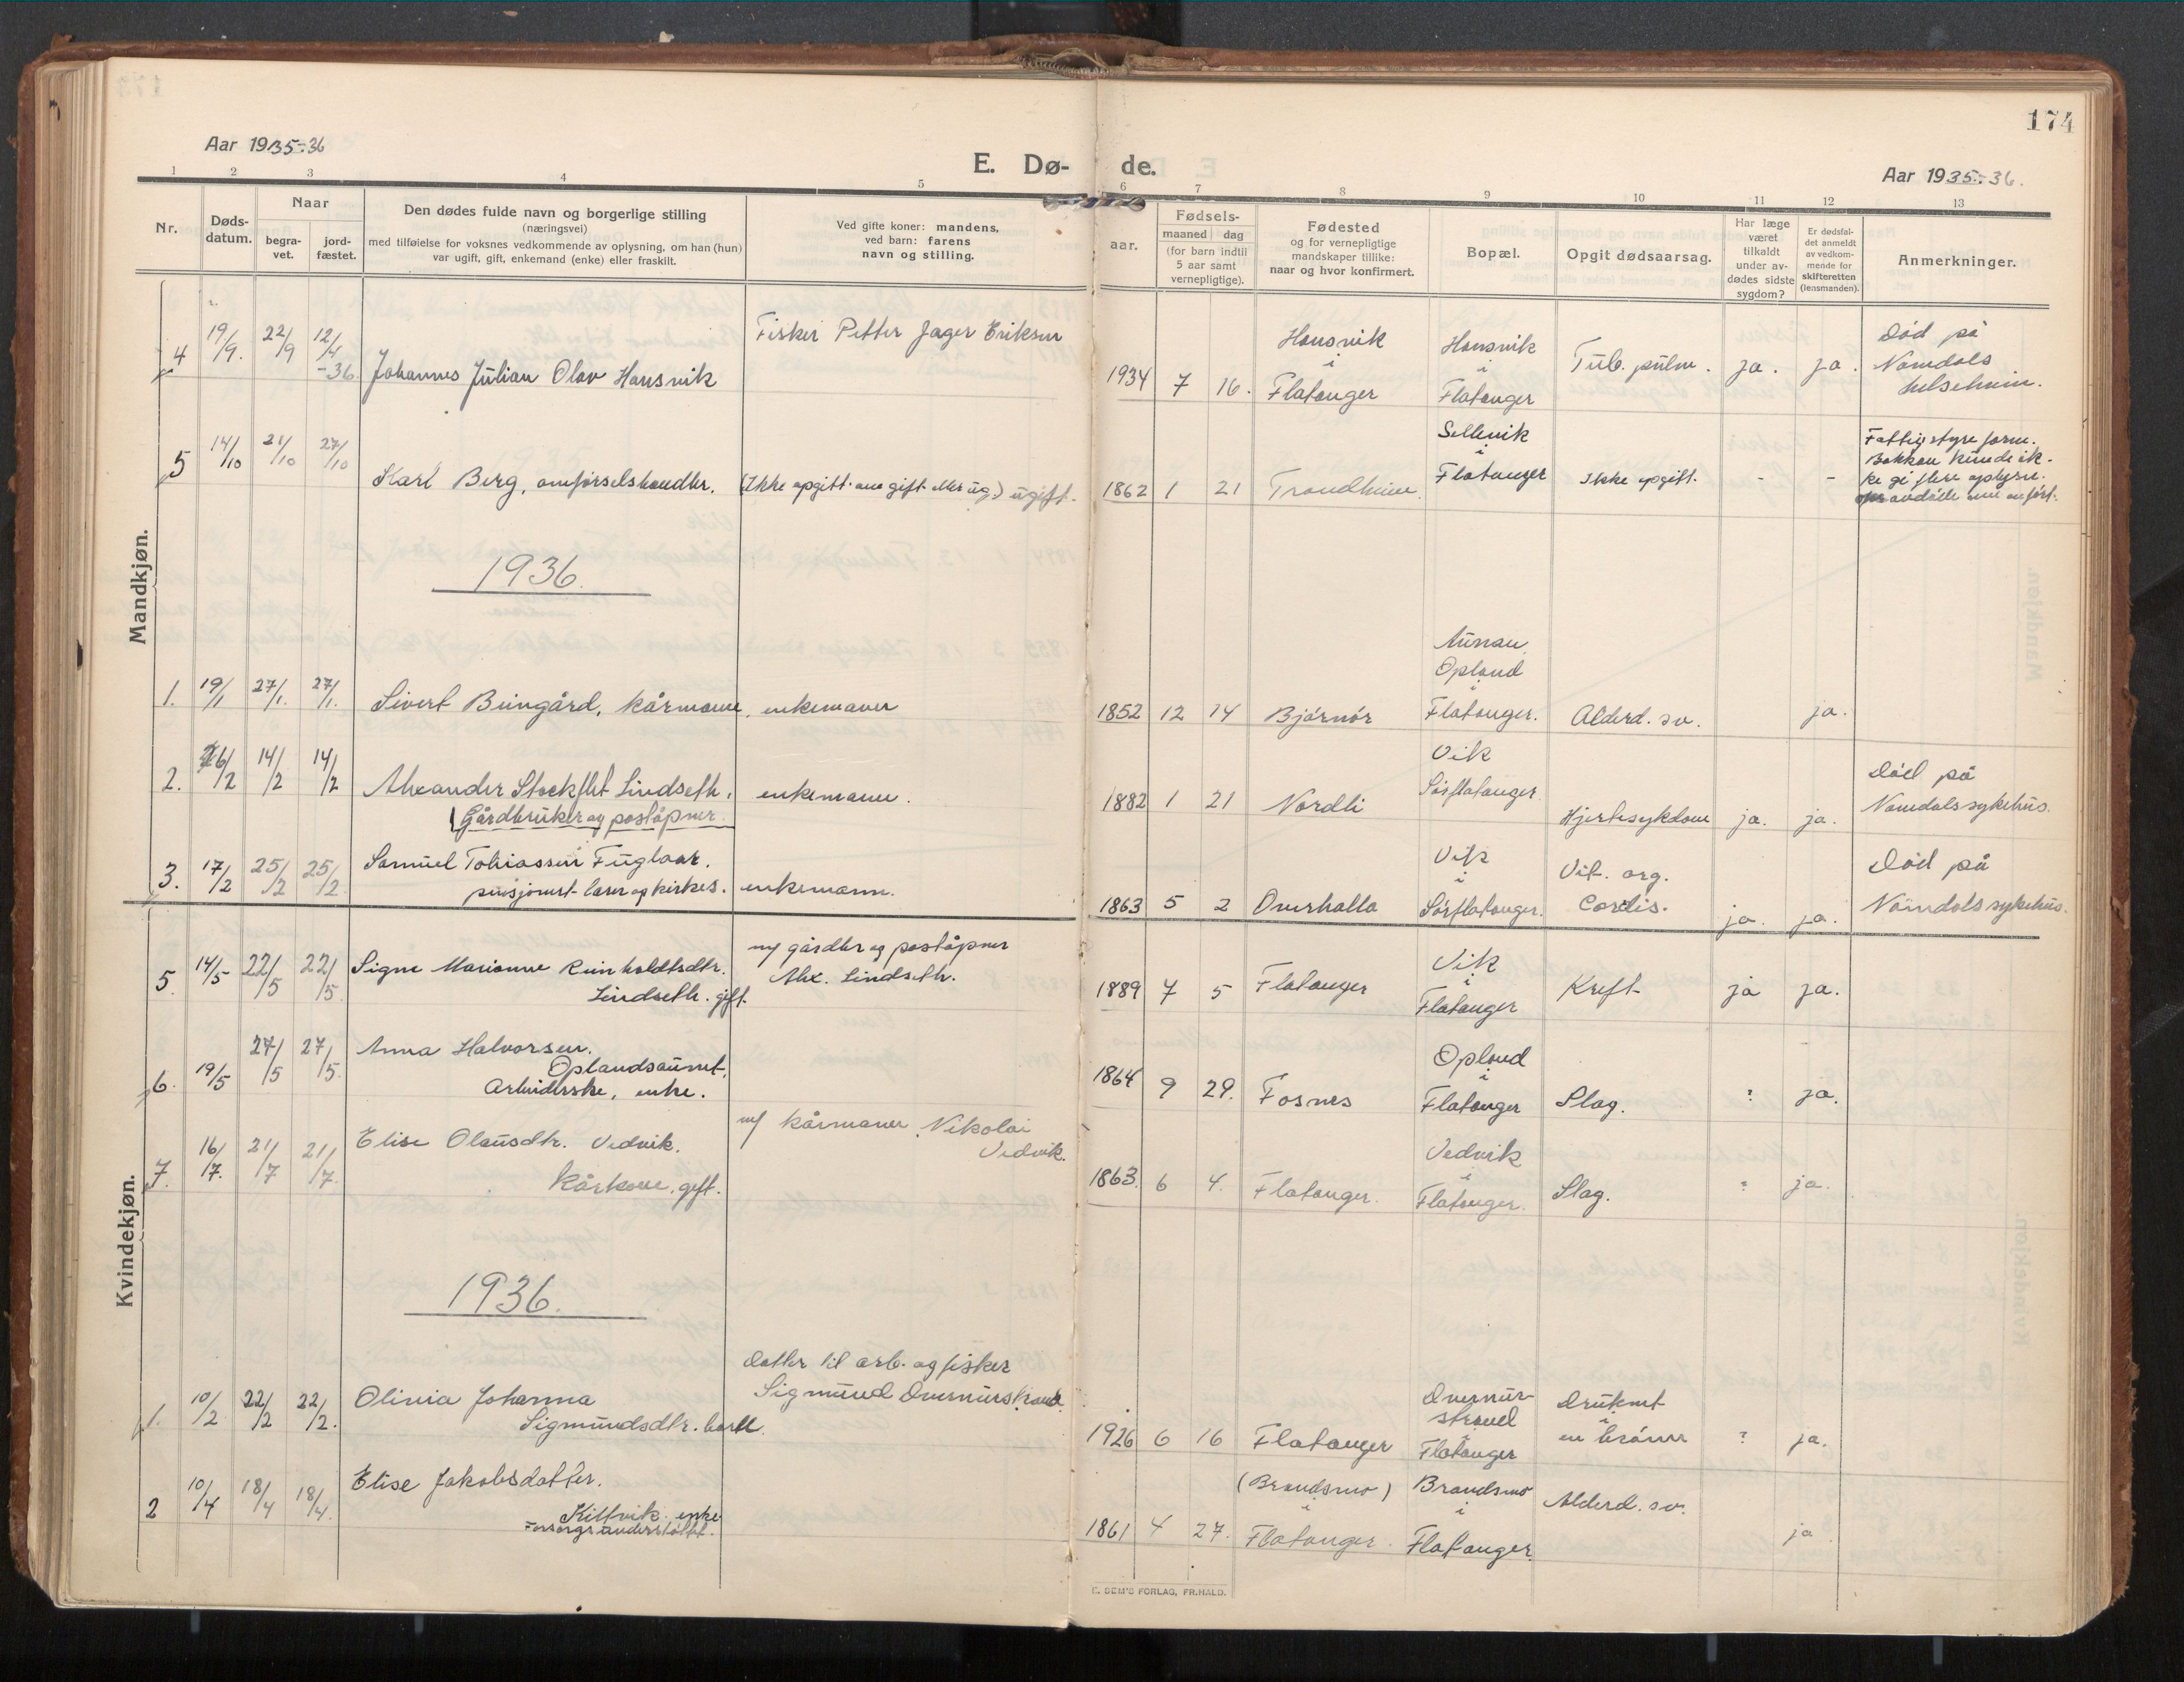 174
Aar 1935-36
E. Dø- de.
Aar 1935-36.
1 2 3 4 5 6 7 8 9 10 11 12 13
Nr.
Døds-
datum.
Naar
begra-
vet.
jord-
fæstet.
Den dødes fulde navn og borgerlige stilling
(næringsvei)
med tilføielse for voksnes vedkommende av oplysning, om han (hun)
var ugift, gift, enkemand (enke) eller fraskilt.
Ved gifte koner: mandens,
ved barn: farens
navn og stilling.
aar.
Fødsels-
maaned dag
(for barn indtil
5 aar samt
vernepligtige).
Fødested
og for vernepligtige
mandskaper tillike:
naar og hvor konfirmert.
Bopæl.
Opgit dødsaarsag.
Har læge
været
tilkaldt
under av-
dødes sidste
sygdom?
Er dødsfal-
det anmeldt
av vedkom-
mende for
skifteretten
(lensmanden).
Anmerkninger.
Mandkjøn.
4 19/9. 22/9 12/4 -36 Johannes Julian Olav Hansvik
Fisker Petter Jager Eriksen
1934 7 16. Hansvik
i
Flatanger
Hansvik
i
Flatanger
Tub. pulm. ja. ja.
Død på
Namdals
helseheim.
5 14/10 21/10 27/10 Karl Berg, omførselshandler. (Ikke opgitt om gift eller ug.) ugift.
1862 1 21 Trondheim
Sellevik
i
Flatanger
Ikke opgitt. - -
Fattigstyreform.
Bakken kunde ik-
ke gi flere oplysn.
om avdøde enn anført.
1936.
1. 19/1 27/1. 27/1. Sivert Beingård, kårmann, enkemann
1852 12 14 Bjørnør
Aunan,
Opland
i
Flatanger.
Alderd. sv. ja.
2. 26/2 14/2 14/2 Alexander Stockflet Lindseth, enkemann.
Gårdbruker og poståpner.
1882 1 21 Nordli
Vik
Sørflatanger.
Hjertesykdom ja. ja.
Død på
Namdals sykehus.
3. 17/2 25/2 25/2 Samuel Tobiassen Fuglaar.
pensjonert lærer og kirkes. enkemann.
1863 5 2 Overhalla
Vik
i
Sørflatanger.
Vit. org.
Cordis.
ja. ja.
Død på
Namdals sykehus.
Kvindekjøn.
5. 14/5 22/5 22/5. Signe Marianne Reinholdtsdtr.
Lindseth. gift.
m/ gårdbr og poståpner
Alex. Lindseth.
1889 7 5 Flatanger
Vik
i
Flatanger
Kreft ja ja.
6. 19/5 27/5 27/5. Anna Halvorsen.
Oplandsaunet,
Arbeiderske, enke.
1864 9 29. Fosnes
Opland
i
Flatanger
Slag. ? ja.
7. 16/7. 21/7 21/7. Elise Olausdtr. Vedvik.
Kårkone, gift.
m/ kårmann Nikolai
Vedvik.
1863. 6 4. Flatanger.
Vedvik
i
Flatanger.
Slag. ? ja.
1936.
1. 10/2 22/2 22/2. Olivia Johanna
Sigmundsdtr. barn.
datter til arb. og fisker
Sigmund Dvernurstrand.
1926 6 16 Flatanger
Dvernur-
strand
i
Flatanger
Druknet
i
en brønn
? ja.
2 10/4 18/4 18/4. Elise Jakobsdatter.
Kittvik enke
Forsorgsunderstøttet.
1861 4 27. (Brandsmo)
i
Flatanger.
Brandsmo
i
Flatanger.
Alderd. sv. ja
E. SEM'S FORLAG, FR.HALD.